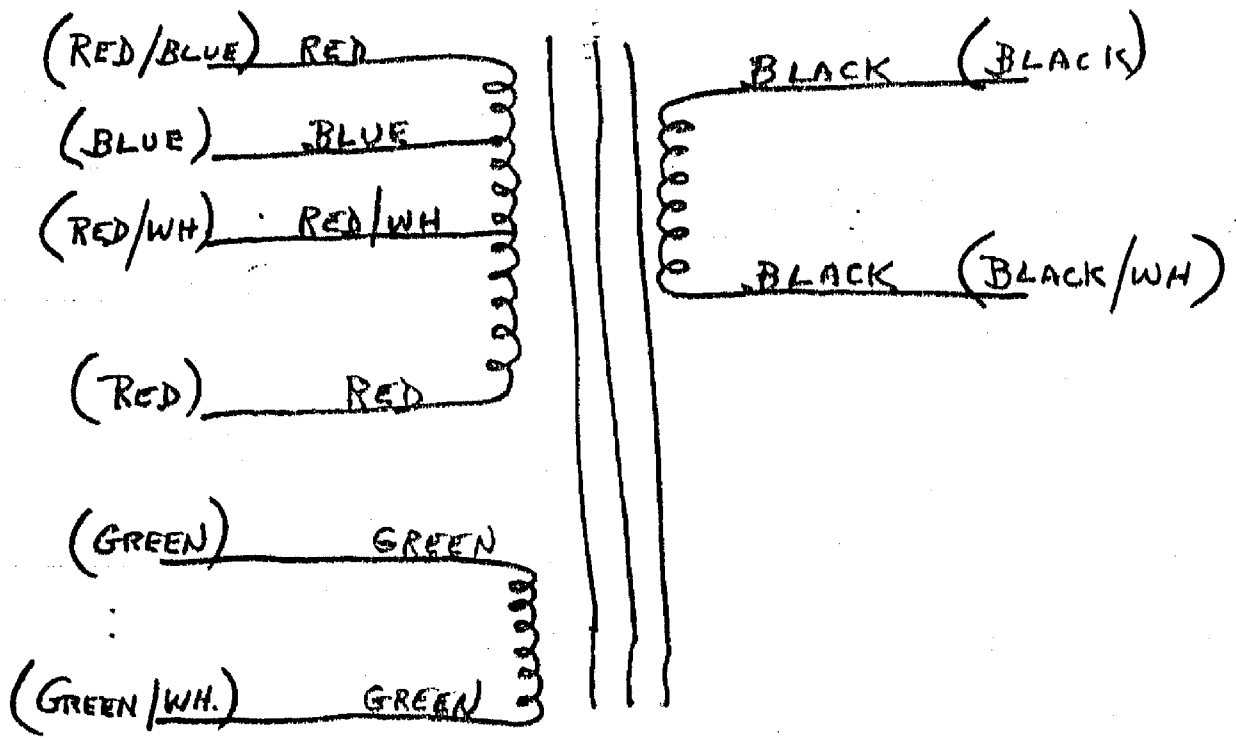 (RED/BLUE) RED
(BLUE) BLUE
(RED/WH) RED/WH
(RED) RED
(GREEN) GREEN
(GREEN/WH.) GREEN
BLACK (BLACK)
BLACK (BLACK/WH)